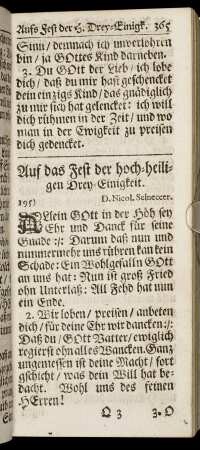 Aufs Fest der H. Drey-Einigk. 365
Sinn / dennach ich unverlohren
bin / ja GOttes Kind darneben.
3. Du GOtt der Lieb / ich lobe
dich / daß du mir hast geschencket
dein einzigs Kind / das gnädiglich
zu mir sich hat gelencket: ich will
dich rühmen in der Zeit / und wo
man in der Ewigkeit zu preisen
dich gedencket.
Auf das Fest der hoch-heili-
gen Drey-Einigkeit.
D. Nicol. Selneccer.
195)
ALlein GOtt in der Höh sey
Ehr und Danck für seine
Gnade :/: Darum daß nun und
nimmermehr uns rühren kan kein
Schade: Ein Wohlgefalln GOtt
an uns hat: Nun ist groß Fried
ohn Unterlaß: All Fehd hat nun
ein Ende.
2. Wir loben / preisen / anbeten
dich / für deine Ehr wir dancken :/:
Daß du / GOtt Vatter / ewiglich
regierst ohn alles Wancken. Ganz
ungemessen ist deine Macht / fort
gschicht / was dein Will hat be-
dacht. Wohl uns des feinen
HErren!
Q 3 3. O